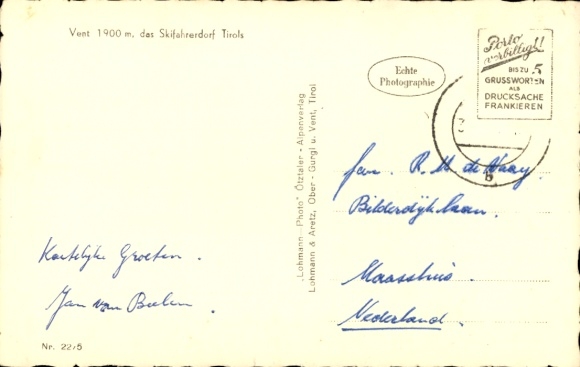 Vent 1900 m, das Skifahrerdorf Tirols
Echte
Photographie
Porto
verbilligt!
BIS ZU 5
GRUSSWORTEN
ALS
DRUCKSACHE
FRANKIEREN
"Lohmann-Photo" Ötztaler-Alpenverlag
Lohmann & Aretz, Ober-Gurgl u. Vent, Tirol
Fam. R. M. de Waay.
Bilderdijklaan.
Maassluis.
Nederland.
Hartelijke Groeten.
Jan van
Nr. 2275